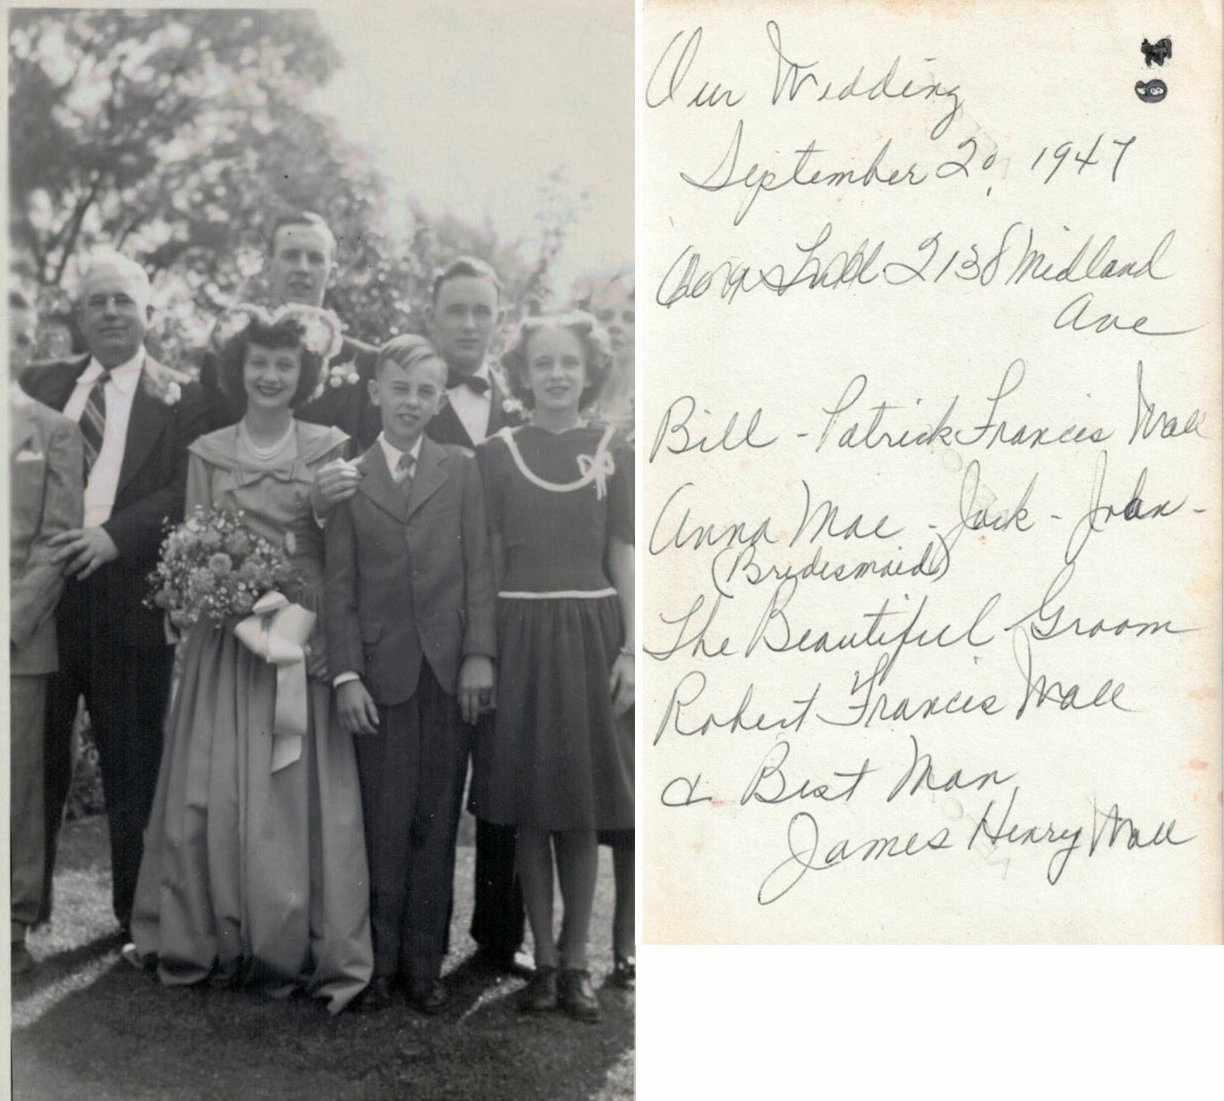 64
Our Wedding
September 20, 1947
2138 Midland
Ave
Bill - Patrick Francis Wall
Anna Mae - Jack - Joan -
(Bridesmaid)
The Beautiful Groom
Robert Francis Wall
& Best Man
James Henry Wall